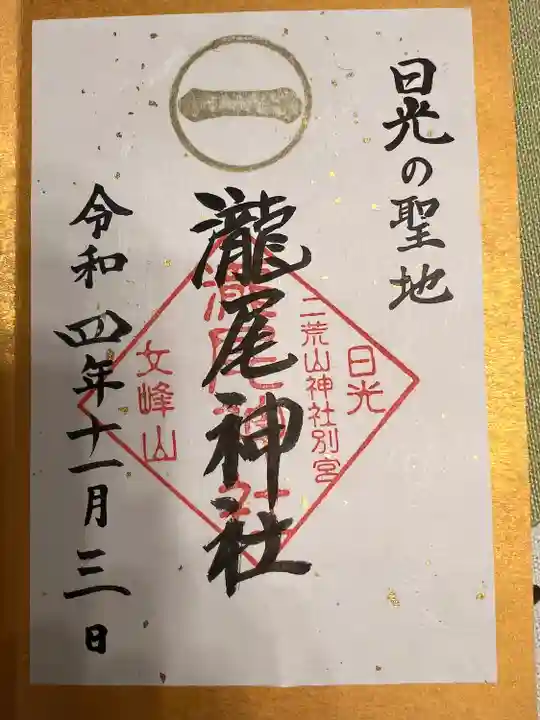 一
日光の聖地
日光
二荒山神社別宮
瀧尾神社
瀧尾神社
女峰山
令和四年十一月三日